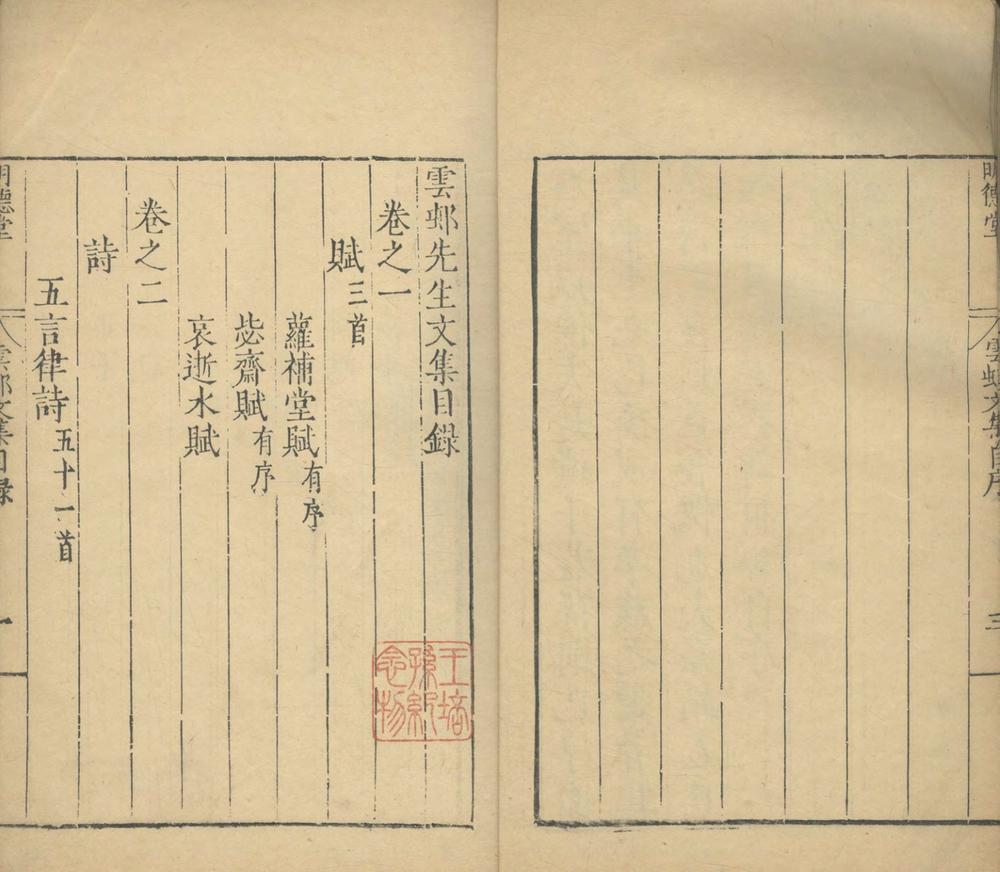 明德堂
雲邨文集自序
三
雲邨先生文集目録
卷之一
賦三首
蘿補堂賦有序
毖齋賦有序
哀逝水賦
卷之二
詩
五言律詩五十一首
明德堂
雲邨文集目録
一
王培孫紀念物